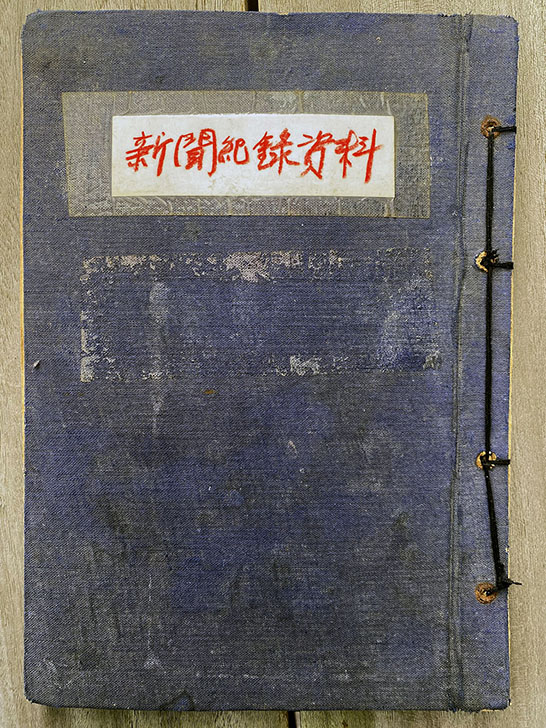 新聞紀錄資料